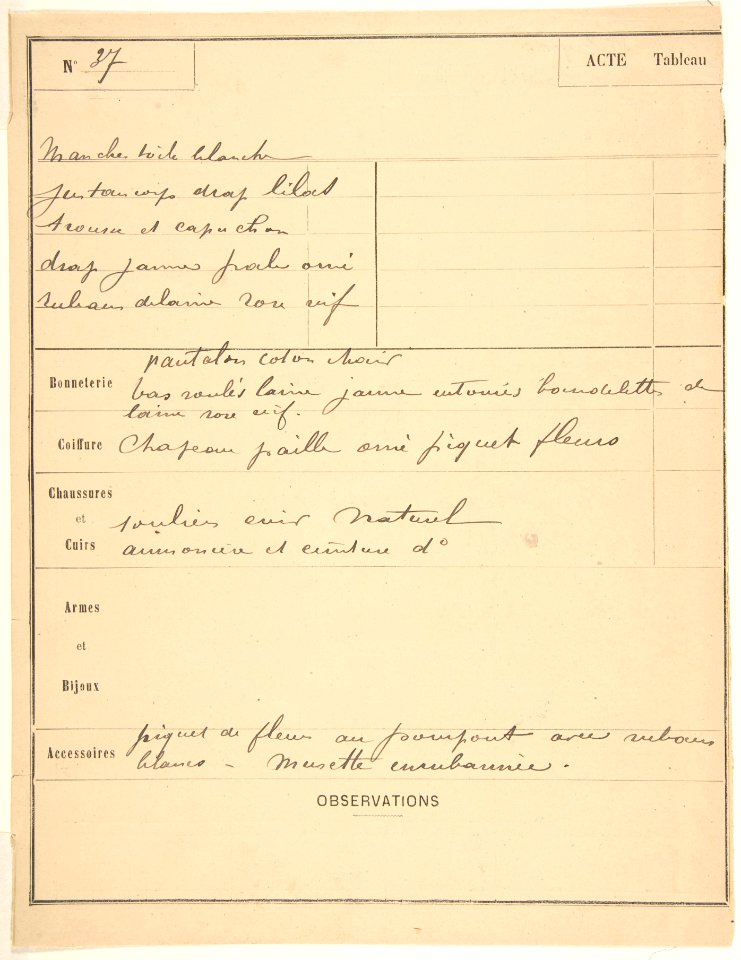 N° 37
ACTE Tableau
Manches toile blanche
justaucorps drap lilas
trousse et capuchon
drap jaune pale orné
rubans de laine rose vif
pantalon coton chair
Bonneterie
bas roulés laine jaune entourés bandelettes de
laine rose vif.
Coiffure
Chapeau paille orné piquet fleurs
Chaussures
et
Cuirs
souliers cuir naturel
aumonière et ceinture d°
Armes
et
Bijoux
piquet de fleurs au pourpoint avec rubans
Accessoires
blancs - Musette enrubannée.
OBSERVATIONS